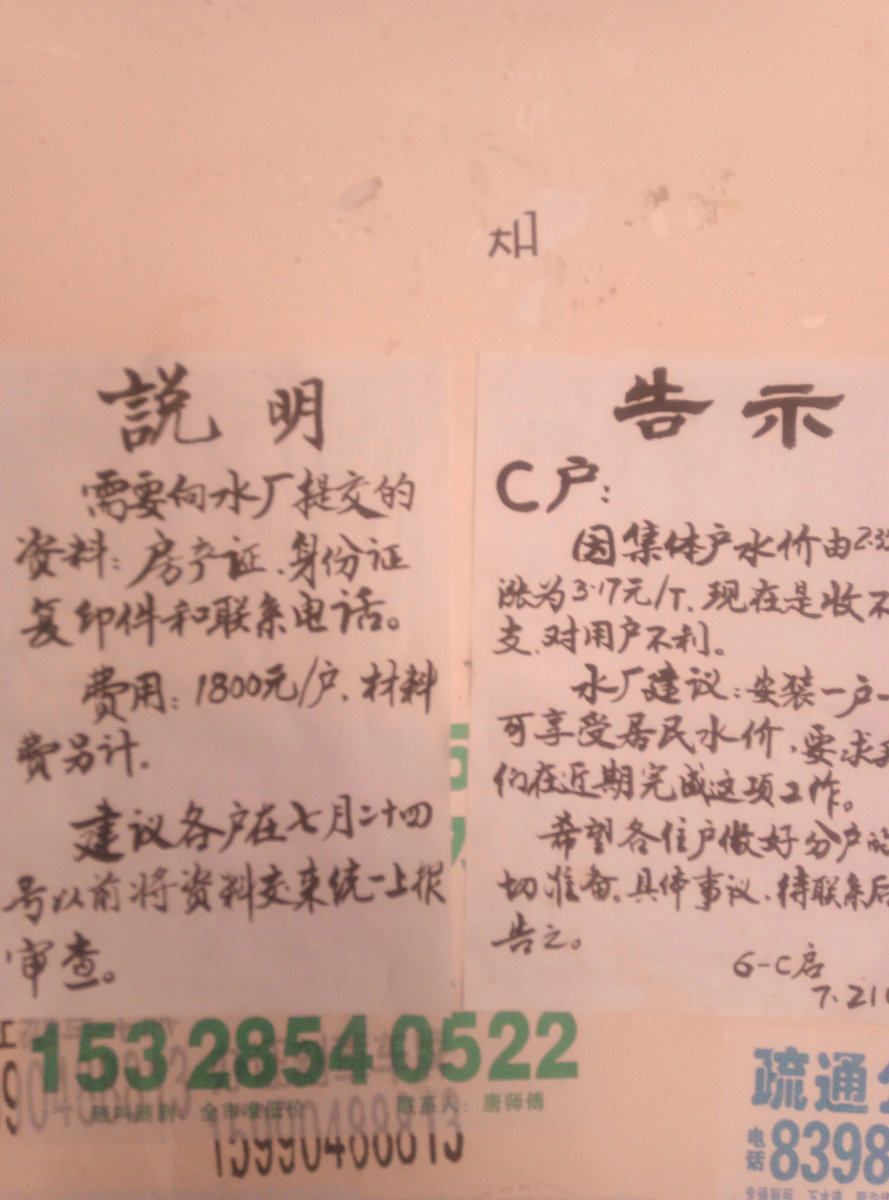 説明
需要向水厂提交的
资料：房产证、身份证
复印件和联系电话。
费用：1800元/户，材料
费另计。
建议各户在七月二十四
号以前将资料交来统一上报
审查。
告示
C户：
因集体户水价由2.3
涨为3.17元/T，现在是收不
支，对用户不利。
水厂建议：安装一户一
可享受居民水价，要求我
们在近期完成这项工作。
希望各住户做好分户的
切准备。具体事议，待联系后
告之。
6-C启
7.21
15328540522
全市
联系人：唐师傅
15990488813
疏通
电话
8398